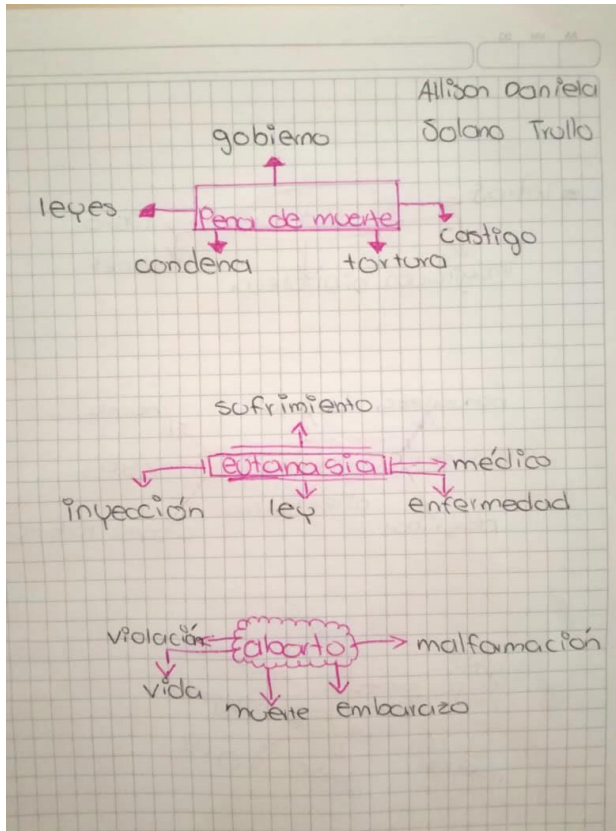 Allison Daniela
Solano Trullo
gobierno
leyes
Pena de muerte
castigo
condena
tortura
sufrimiento
eutanasia
médico
inyección
ley
enfermedad
violación
aborto
malformación
vida
muerte
embarazo